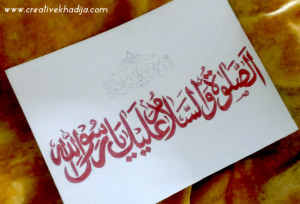 www.creativekhadija.com
الصلوة والسلام عليك يا رسول الله